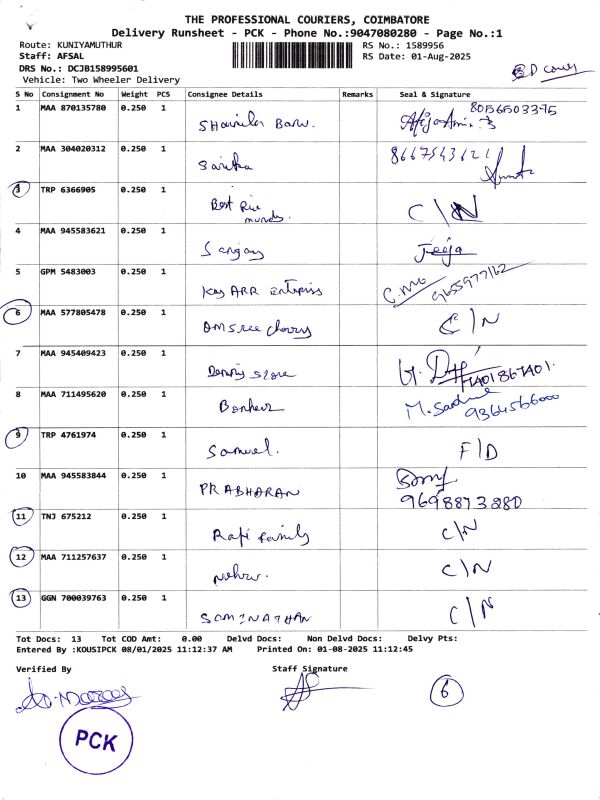 THE PROFESSIONAL COURIERS, COIMBATORE
Delivery Runsheet - PCK - Phone No.:9047080280 - Page No.:1
Route: KUNIYAMUTHUR RS No.: 1589956
Staff: AFSAL RS Date: 01-Aug-2025
DRS No.: DCJB158995601
Vehicle: Two Wheeler Delivery
S No Consignment No Weight PCS Consignee Details Remarks Seal & Signature
1 MAA 870135780 0.250 1 8056503375
2 MAA 304020312 0.250 1 Sarika 8667543621
3 TRP 6366905 0.250 1 Best C/N
4 MAA 945583621 0.250 1 Sanjay Jeeja
5 GPM 5483003 0.250 1 Key ARR Enterpriss 9655977162
6 MAA 577805478 0.250 1 C/N
7 MAA 945409423 0.250 1 Dennis store
8 MAA 711495620 0.250 1 9364566000
9 TRP 4761974 0.250 1 Samuel. F/D
10 MAA 945583844 0.250 1 PRABHARAN 9698873280
11 TNJ 675212 0.250 1 Rafi family C/N
12 MAA 711257637 0.250 1 C/N
13 GGN 700039763 0.250 1 SOMINATHAN C/N
Tot Docs: 13 Tot COD Amt: 0.00 Delvd Docs: Non Delvd Docs: Delvy Pts:
Entered By :KOUSIPCK 08/01/2025 11:12:37 AM Printed On: 01-08-2025 11:12:45
Verified By Staff Signature
6
PCK